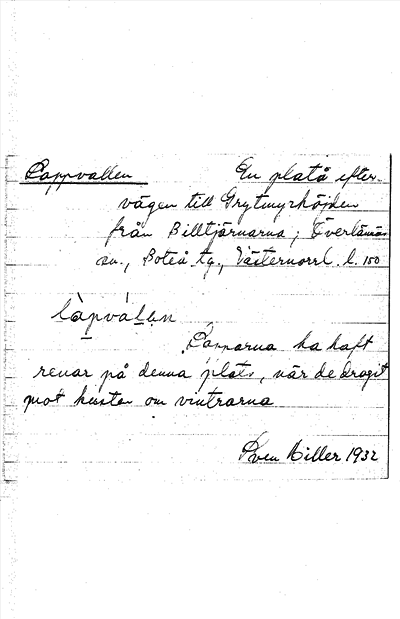 Lappvallen En platå efter
vägen till Grytmyrhöjden
från Billtjärnarna; Överlännäs
sn., Boteå tg., Västernorrl. l. 150
làpválen
Lapparna ha haft
renar på denna plats, när de dragit
mot kusten om vintrarna
Sven Hiller 1932